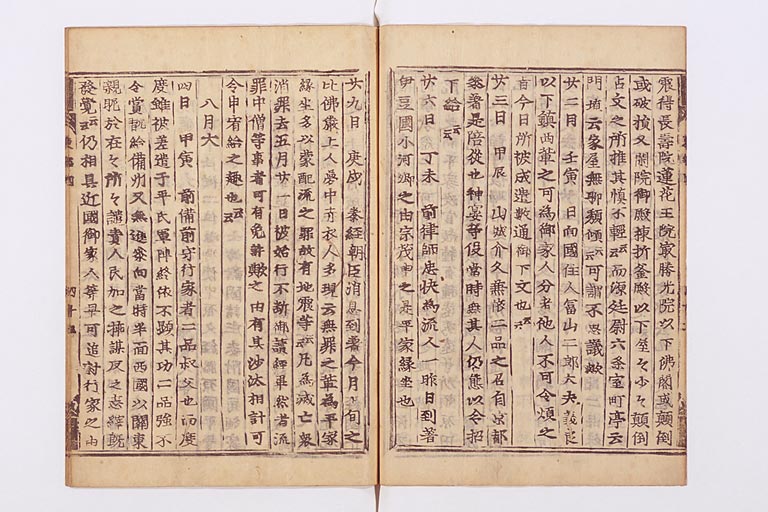 震得長壽院蓮花王院最勝光院以下佛閣或顛倒
或破損又閑院御殿棟折釜殿以下屋々少々顛倒
占文之所推其愼不輕云々而源廷尉六条室町亭云
門垣云家屋無聊頽傾云々可謂不思議歟
廿二日　壬寅　日向國住人冨山二郎大夫義良
以下鎮西輩之可為御家人分者他人不可令煩之
旨今日所被成遣數通御下文也云々
廿三日　甲辰　山城介久兼依二品之召自京都
參著是陪從也神宴等役當時無其人仍態以令招
下給云々
廿六日　丁未　前律師忠快為流人一昨日到著
伊豆國小河郷之由宗茂申之是平家縁坐也
廿九日　庚戌　泰經朝臣消息到著今月上旬之
比佛嚴上人夢中赤衣人多現云無罪之輩為平家
縁坐多以蒙配流之罪故有地震等云々凡為滅亡衆
消罪去五月廿一日被始行不斷御讀經畢然者流
罪中僧等事者可有免許歟之由有其沙汰相計可
令申宥給之趣也云々
八月大
四日　甲寅　前備前守行家者二品叔父也而度
度雖被差遣于平氏軍陣終依不顯其功二品強不
令賞翫給備州又無進參向當時半面西國以關東
親眤於在々所々譴責人民加之挿謀反之志縡既
發覺云々仍相具近國御家人等早可追討行家之由